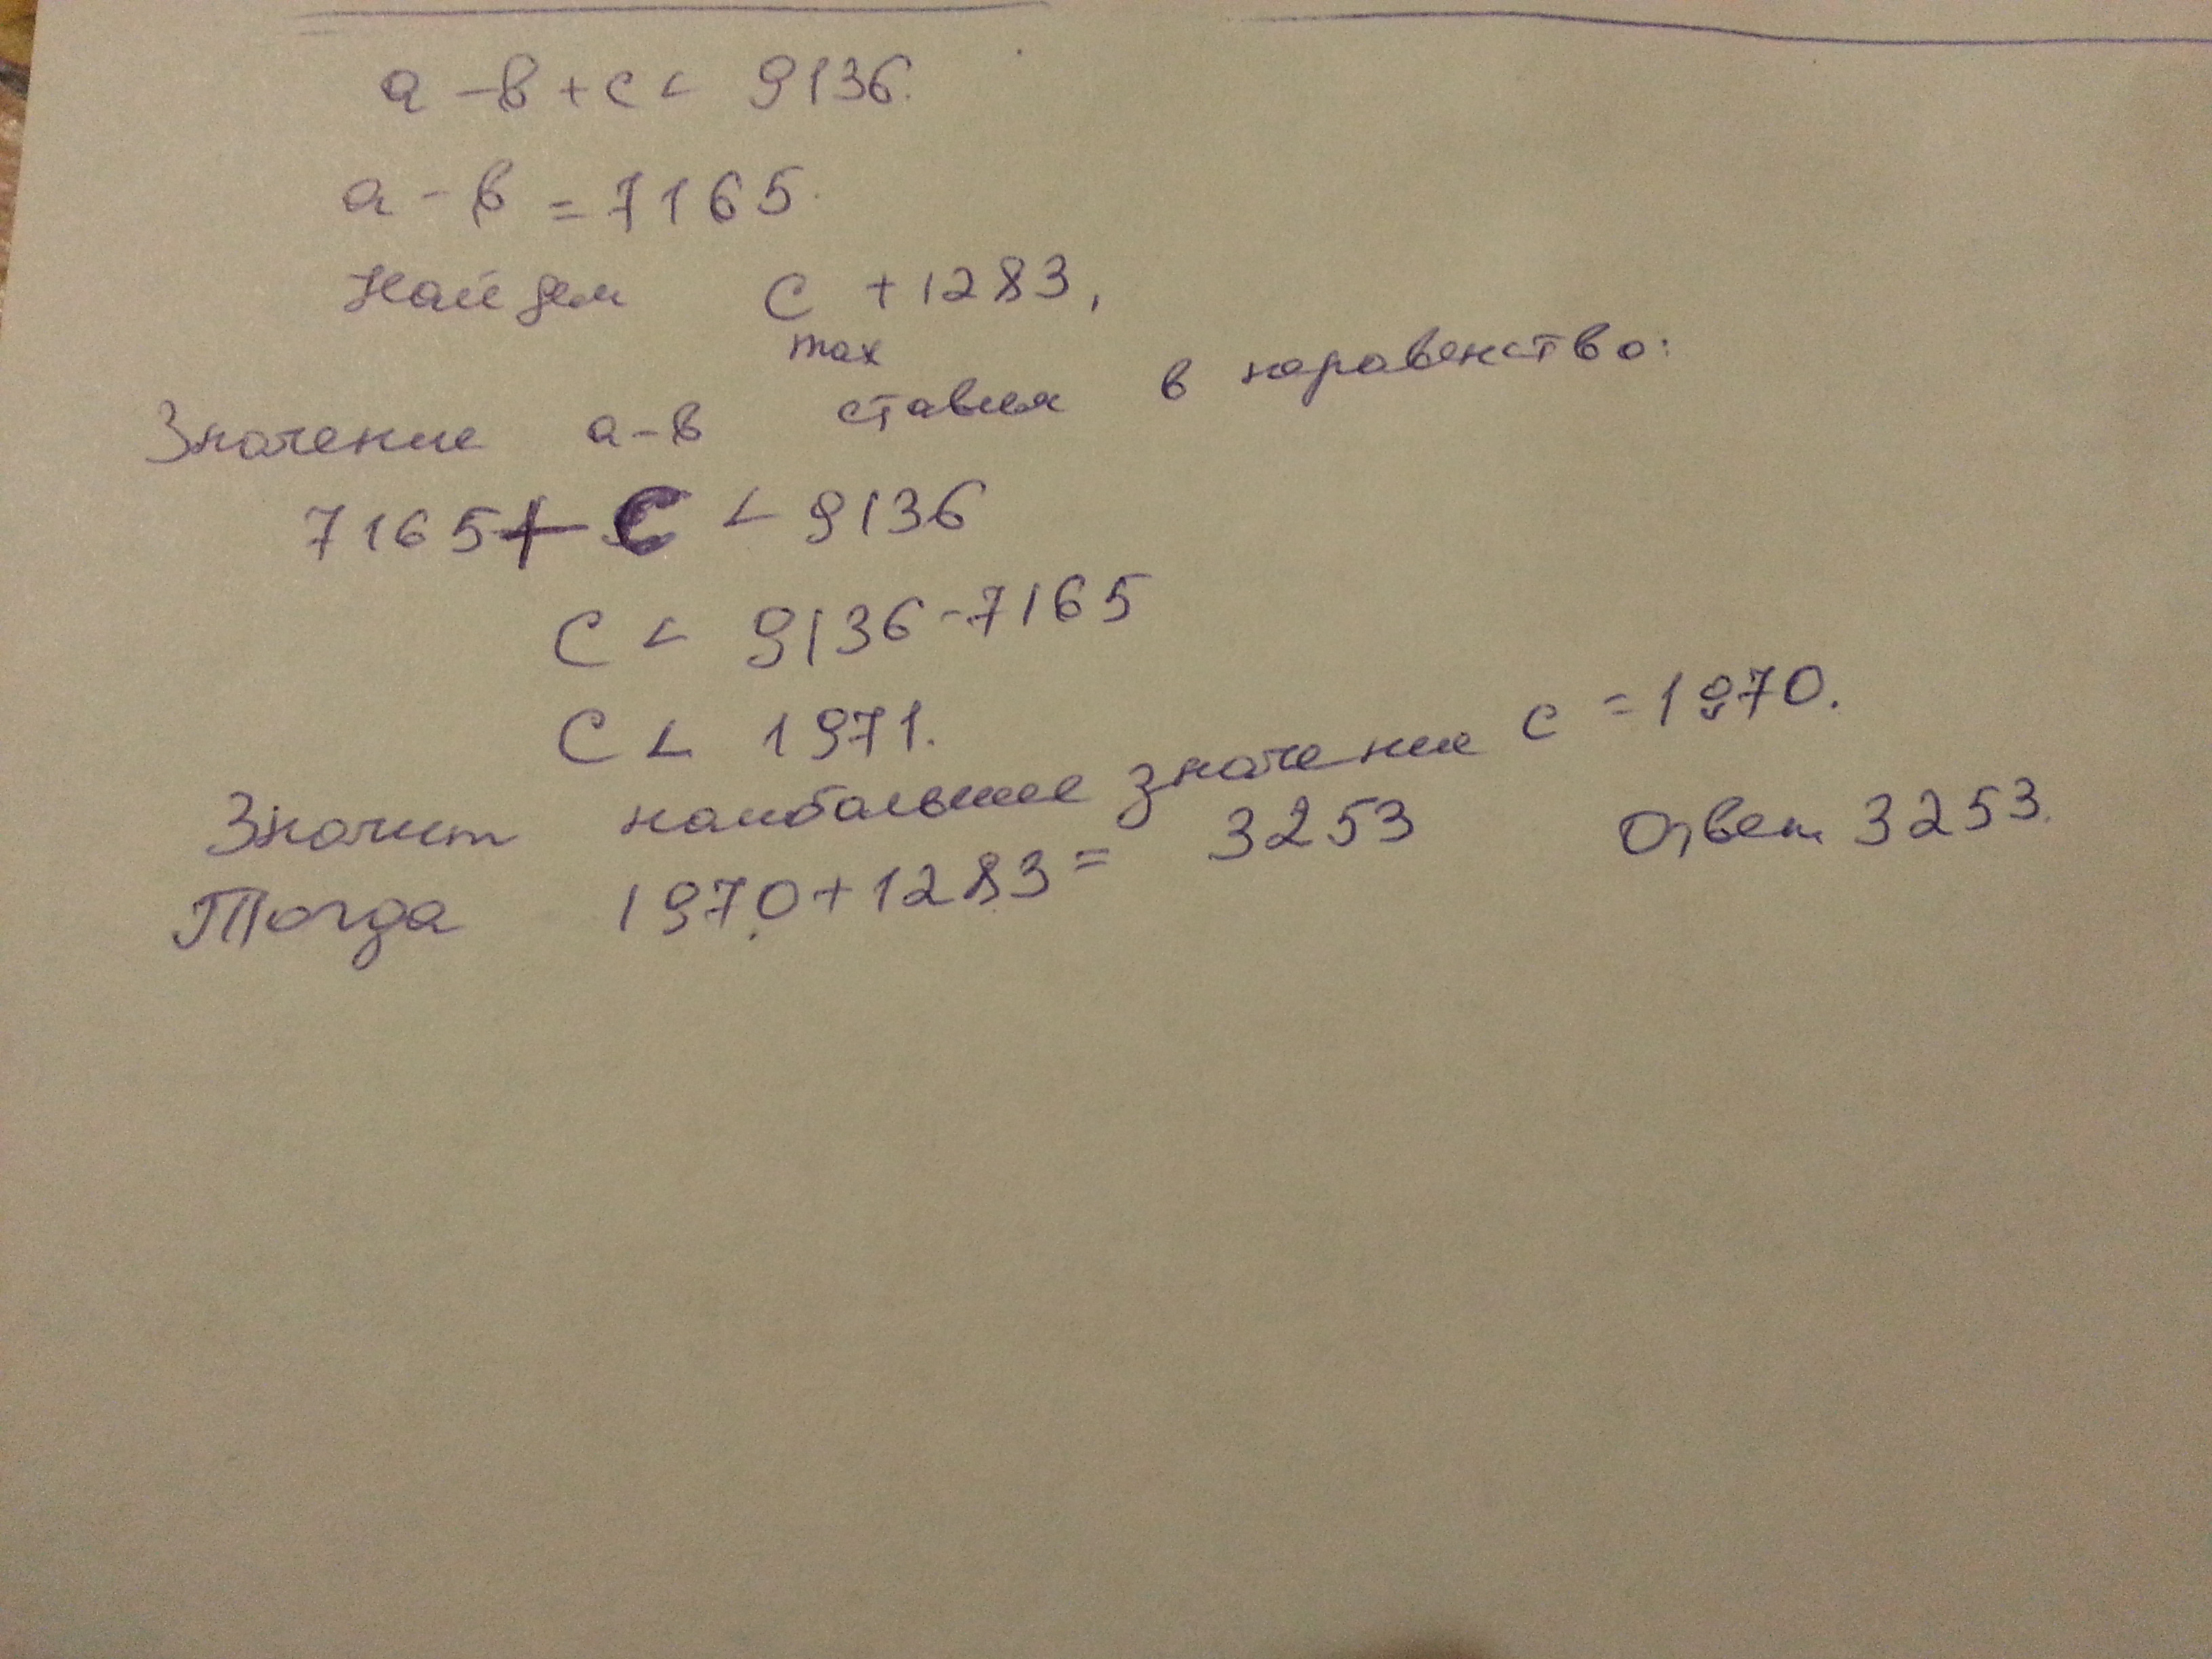 a - в + c < 9136.
a - в = 7165.
Найдем C max + 1283,
Значение a-в ставим в неравенство:
7165 + C < 9136
C < 9136 - 7165
C < 1971.
Значит наибольшее значение c = 1970.
Тогда 1970 + 1283 = 3253 Ответ 3253.